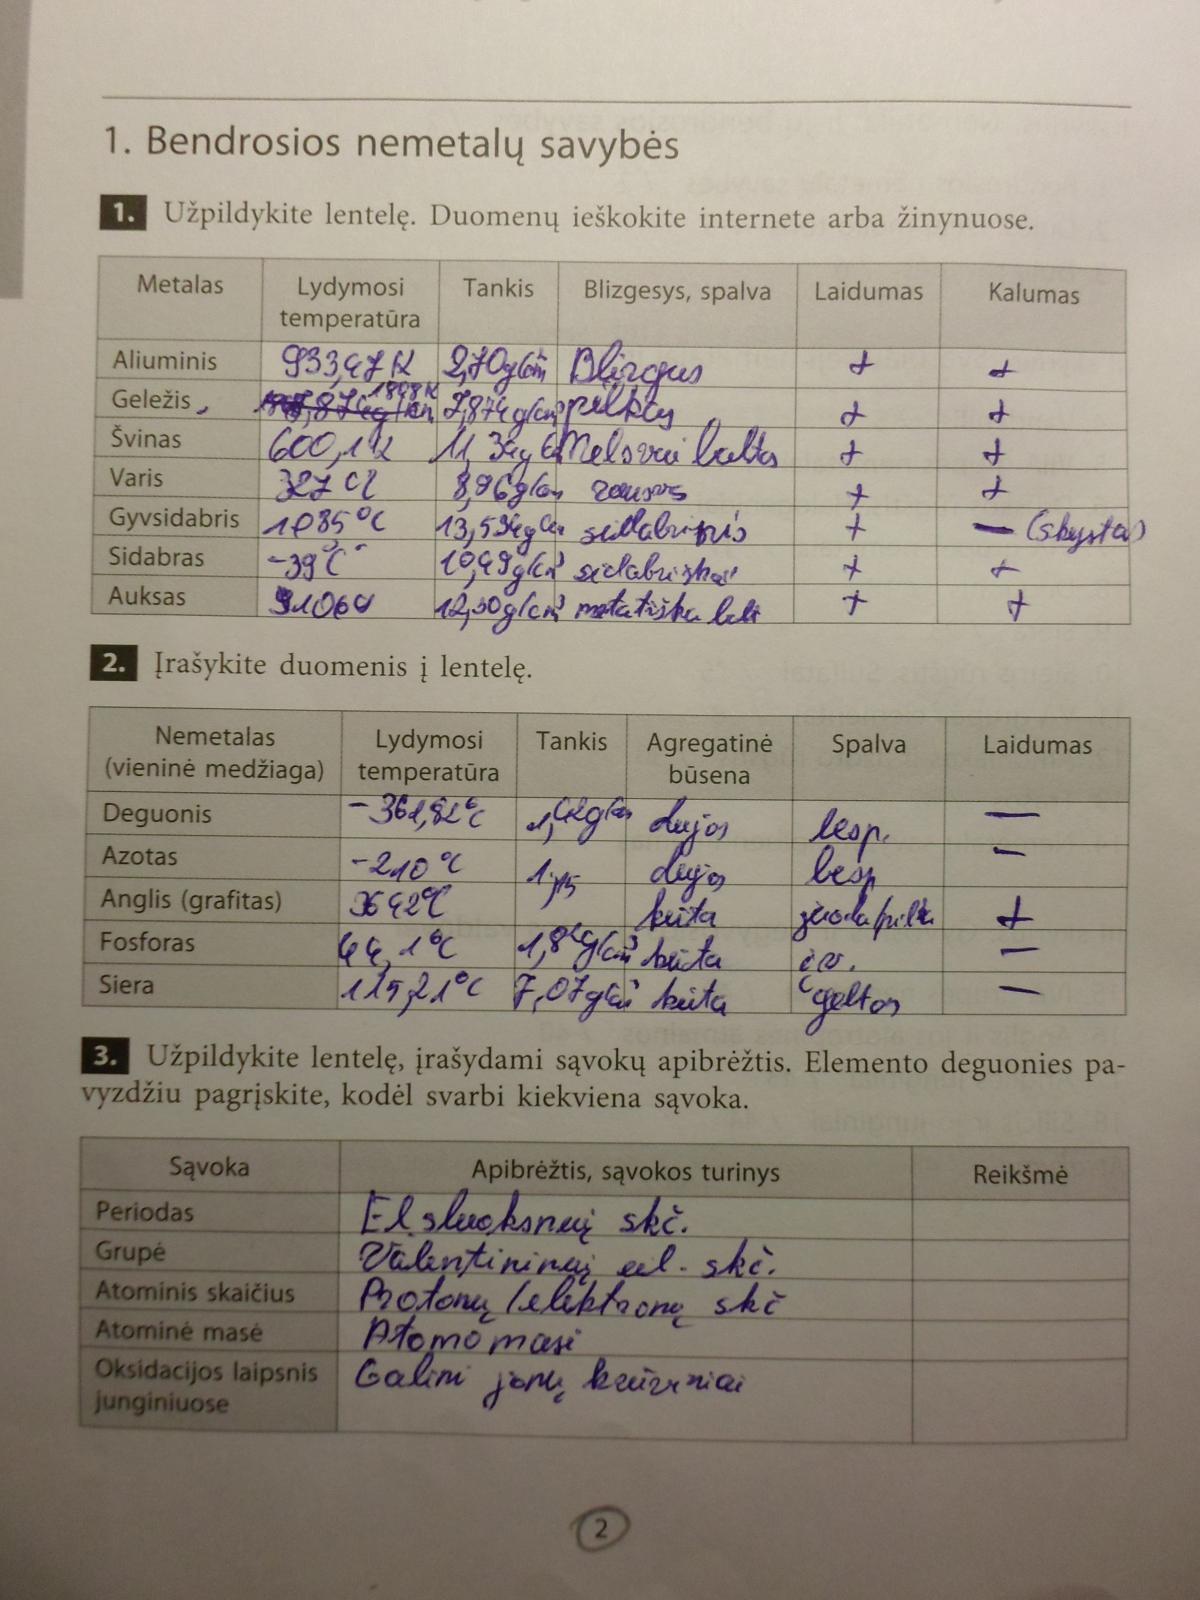 1. Bendrosios nemetalų savybės
1. Užpildykite lentelę. Duomenų ieškokite internete arba žinynuose.
Metalas Lydymosi temperatūra Tankis Blizgesys, spalva Laidumas Kalumas
Aliuminis 933,47 K 2,70g/cm Blizgus + +
Geležis 1808 K 7,874g/cm³ pilkas + +
Švinas 600,1K 11,34g Melsvai balta + +
Varis 327 8,96g/cm + +
Gyvsidabris 1085°C 13,534g/cm + — (skysta)
Sidabras -39°C 10,49g/cm³ + +
Auksas 1060 12,30g/cm³ + +
2. Įrašykite duomenis į lentelę.
Nemetalas (vieninė medžiaga) Lydymosi temperatūra Tankis Agregatinė būsena Spalva Laidumas
Deguonis -361,82°C dujos besp. —
Azotas -210°C 1,15 dujos besp —
Anglis (grafitas) 3642°C kieta juoda/pilka +
Fosforas 44,1°C 1,82g/cm³ kieta įv. —
Siera 115,21°C 7,07g/cm³ kieta geltos —
3. Užpildykite lentelę, įrašydami sąvokų apibrėžtis. Elemento deguonies pa-
vyzdžiu pagrįskite, kodėl svarbi kiekviena sąvoka.
Sąvoka Apibrėžtis, sąvokos turinys Reikšmė
Periodas El. sluoksnių skč.
Grupė Valentininių el. skč.
Atominis skaičius Protonų/elektronų skč
Atominė masė Atomo masė
Oksidacijos laipsnis junginiuose Galimi jonų krūviniai
2